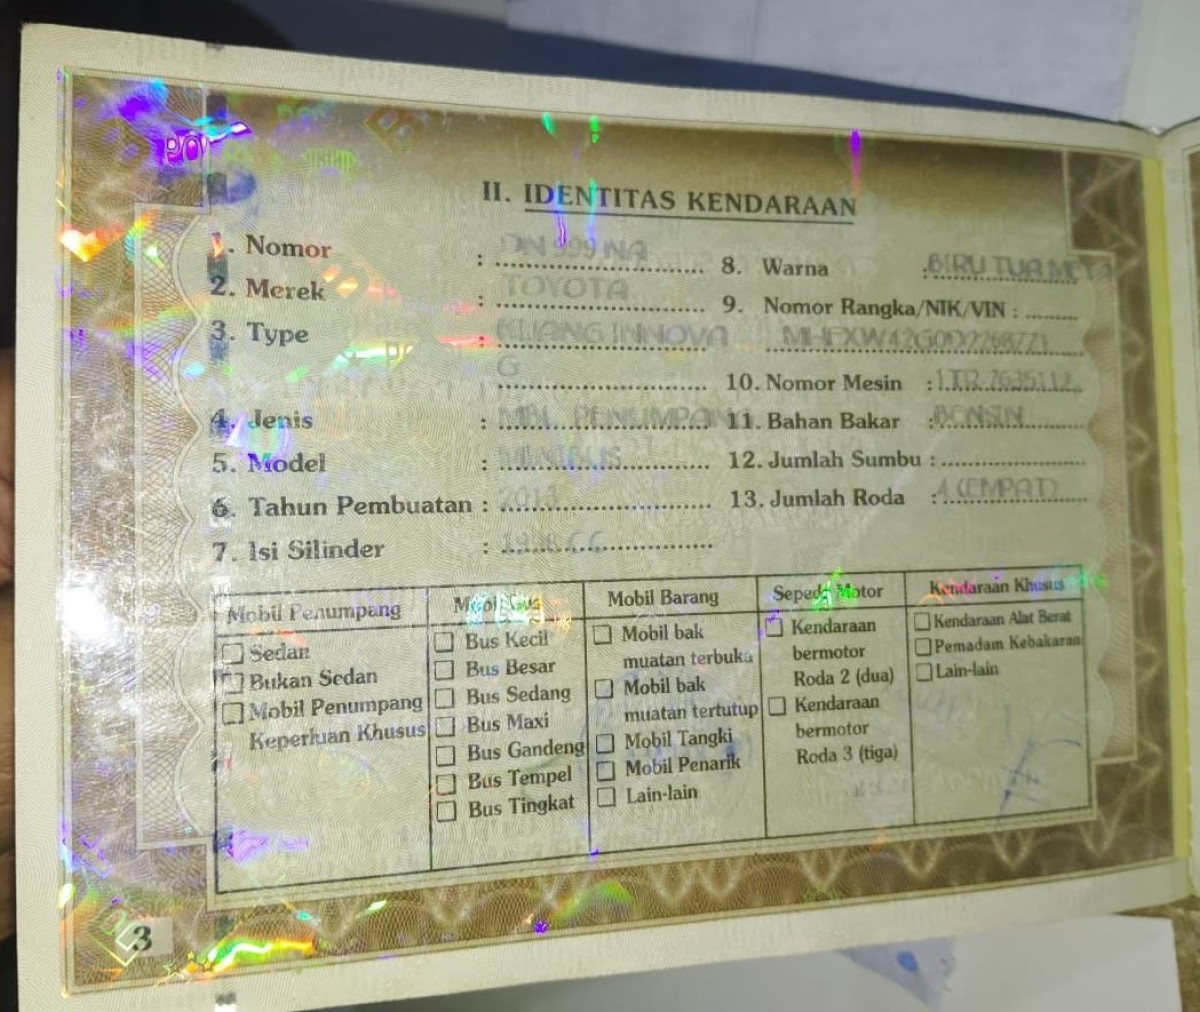 II. IDENTITAS KENDARAAN
1. Nomor : DN 999 NA
2. Merek : TOYOTA
3. Type : KIJANG INNOVA
G
4. Jenis : MBL. PENUMPANG
5. Model : MINIBUS
6. Tahun Pembuatan : 2013
7. Isi Silinder : 1998 CC
8. Warna : BIRU TUA
9. Nomor Rangka/NIK/VIN :
10. Nomor Mesin :
11. Bahan Bakar : BENSIN
12. Jumlah Sumbu :
13. Jumlah Roda : 4 (EMPAT)
Mobil Penumpang
Sedan
Bukan Sedan
Mobil Penumpang
Keperluan Khusus
Mobil Bus
Bus Kecil
Bus Besar
Bus Sedang
Bus Maxi
Bus Gandeng
Bus Tempel
Bus Tingkat
Mobil Barang
Mobil bak
muatan terbuka
Mobil bak
muatan tertutup
Mobil Tangki
Mobil Penarik
Lain-lain
Sepeda Motor
Kendaraan
bermotor
Roda 2 (dua)
Kendaraan
bermotor
Roda 3 (tiga)
Kendaraan Khusus
Kendaraan Alat Berat
Pemadam Kebakaran
Lain-lain
3